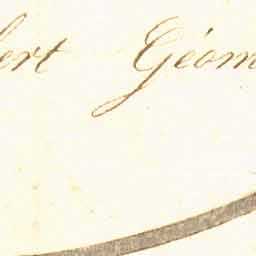 ert Géom